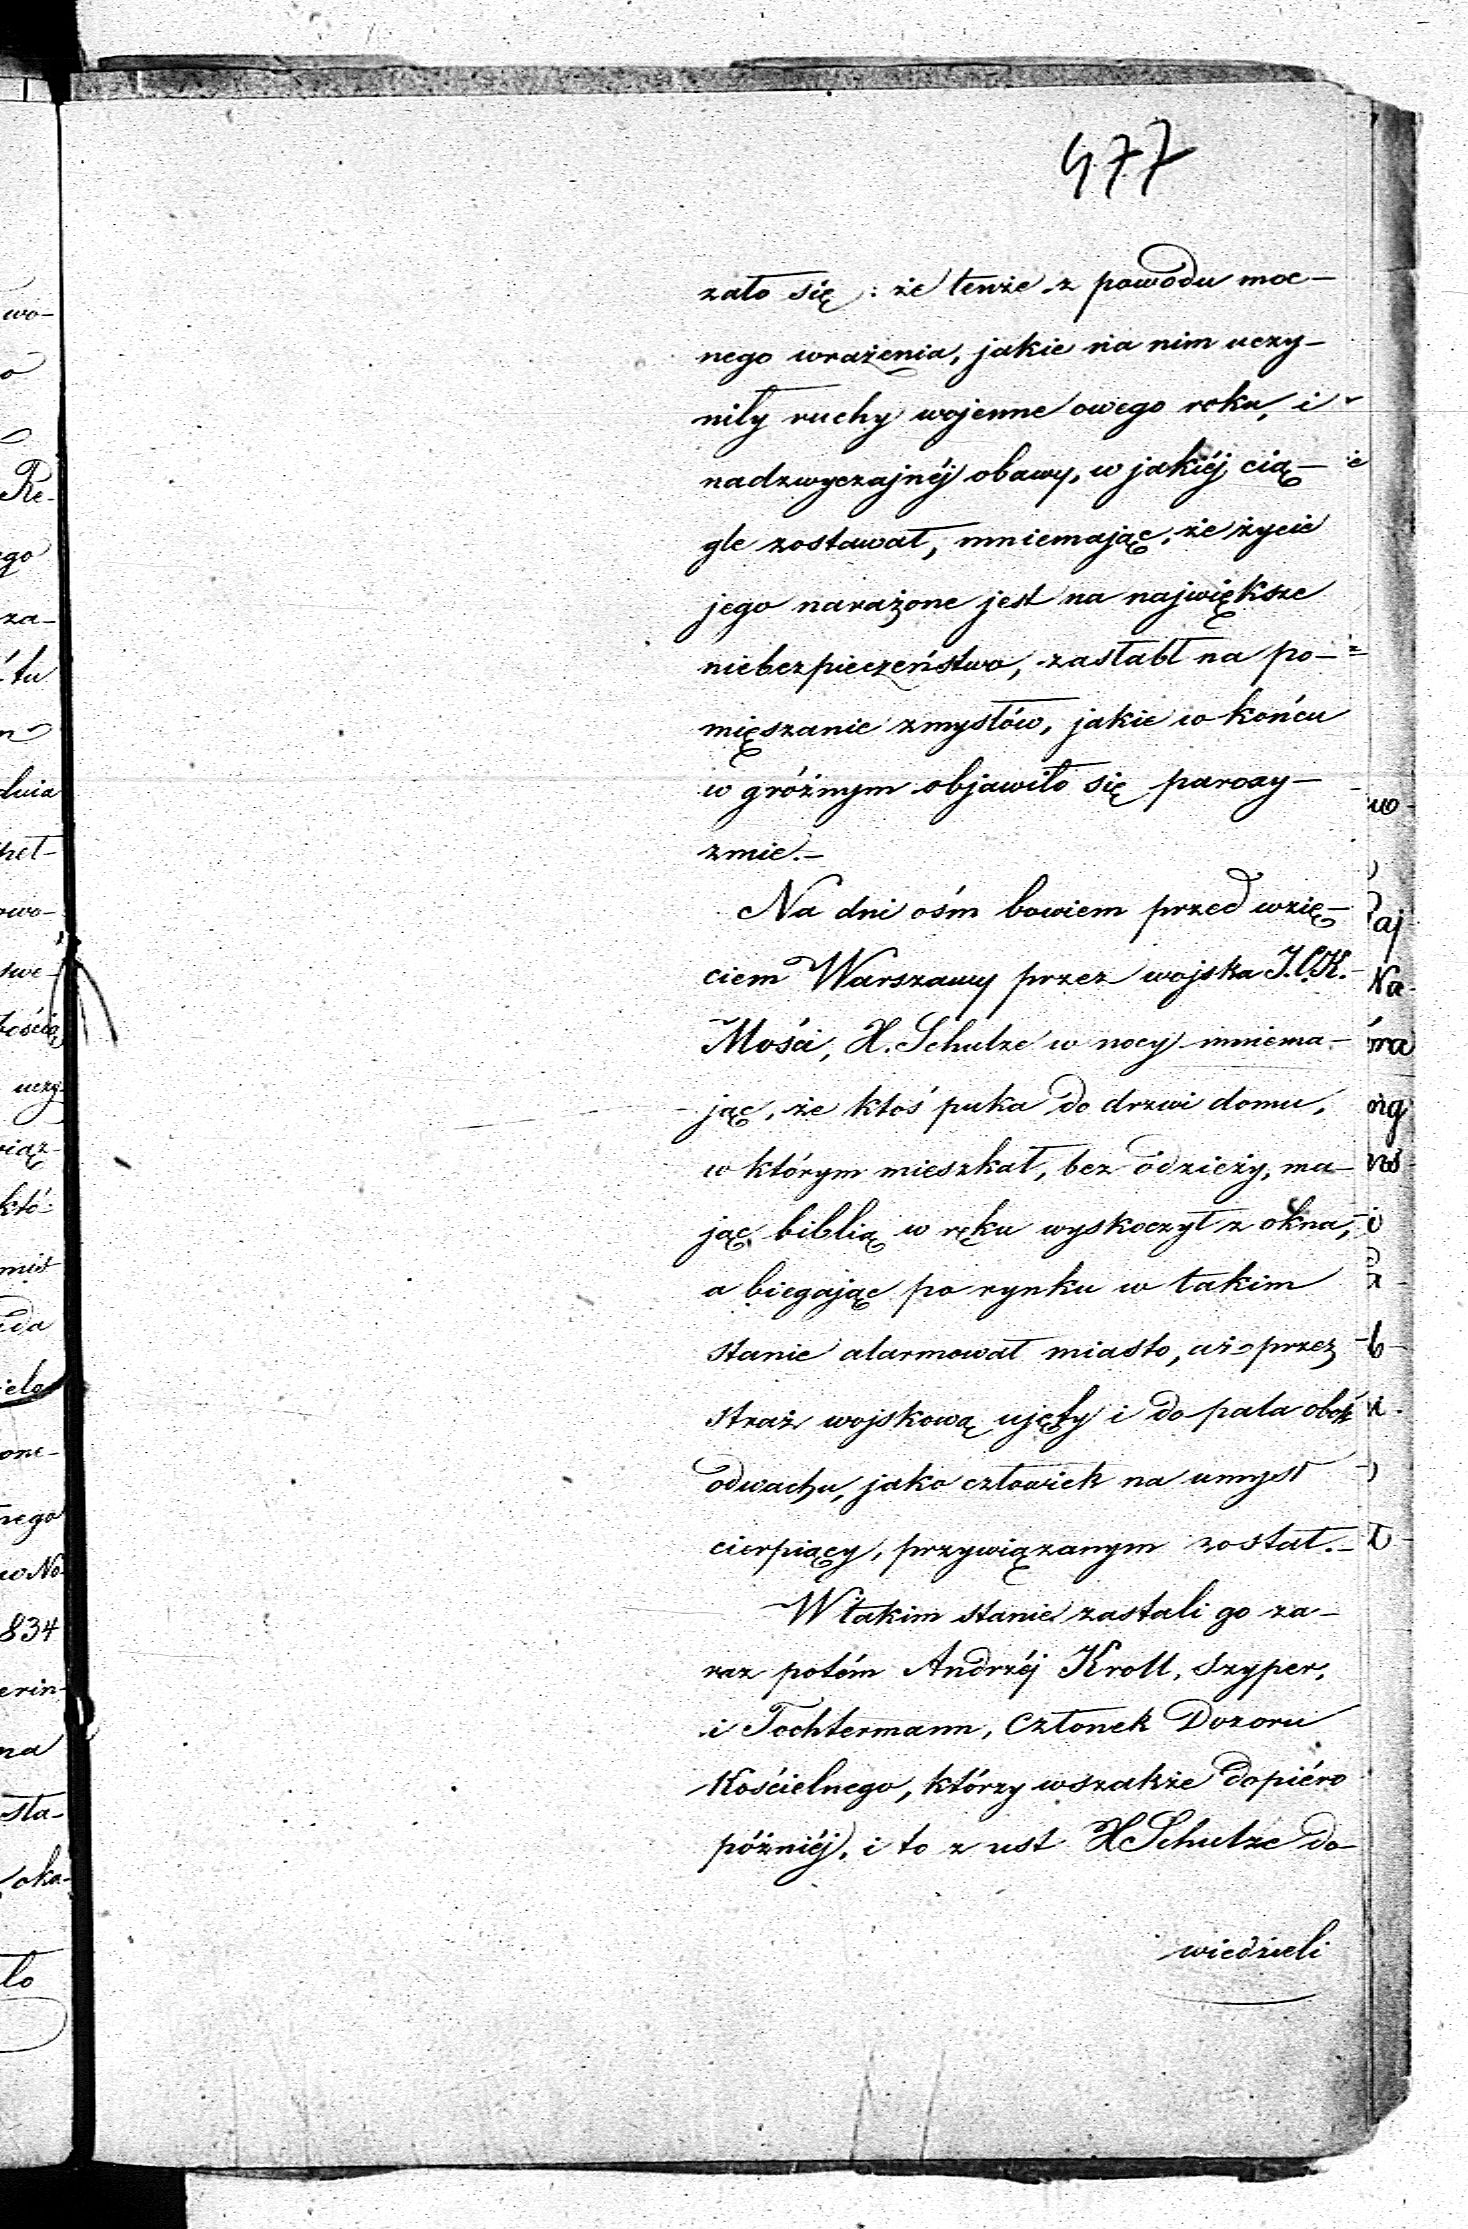 477
zało się: że tenże z powodu moc-
nego wrażenia, jakie na nim uczy-
niły ruchy wojenne owego roku, i
nadzwyczajnéj obawy, w jakiéj cią-
gle zostawał, mniemając, że życie
jego narażone jest na największe
niebezpieczeństwo, zasłabł na po-
mięszanie zmysłów, jakie w końcu
w gróźnym objawiło się paroxy-
zmie.-
Na dni ośm bowiem przed wzię-
ciem Warszawy przez wojska J.C.K.-
Mości, X. Schulze w nocy mniema-
jąc, że ktoś puka do drzwi domu,
w którym mieszkał, bez odzieży, ma-
jąc biblią w ręku wyskoczył z okna,
a biegając po rynku w takim
stanie alarmował miasto, aż przez
straż wojskową ujęty i do pala obok
odwachu, jako człowiek na umyśl
cierpiący, przywiązanym został.-
W takim stanie zastali go za-
raz potém Andrzéj Kroll, szyper,
i Tochtermann, Członek Dozoru
Kościelnego, którzy wszakże dopiéro
późniéj, i to z ust X Schulze do-
wiedzieli